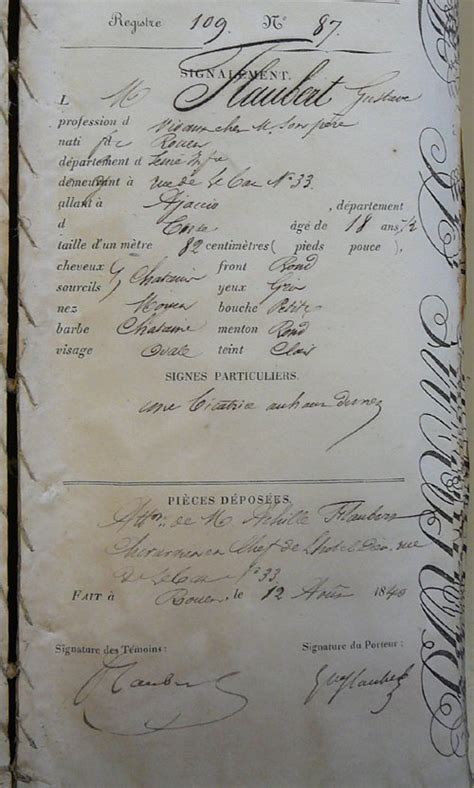 Registre 109. N° 87.
SIGNALEMENT.
L M Flaubert Gustave
profession d vivan chez M. son père
nati f de Rouen
département d Seine Infre
demeurant à rue de Le Cat N° 33.
allant à Ajaccio , département
d Corse âgé de 18 ans
taille d'un mètre 82 centimètres ( pieds pouce ),
cheveux Chatain front Rond
sourcils yeux Gris
nez Moyen bouche Petite
barbe Chataine menton Rond
visage Ovale teint Clair
SIGNES PARTICULIERS.
une Cicatrice au haut du nez
PIÈCES DÉPOSÉES.
Attn. de M. Achille Flaubert
Chirurgien en Chef de L'hotel Dieu rue
de Le Cat N° 33.
FAIT à Rouen, le 12 Août 1840
Signature des Témoins: Signature du Porteur:
Flaubert Gve Flaubert